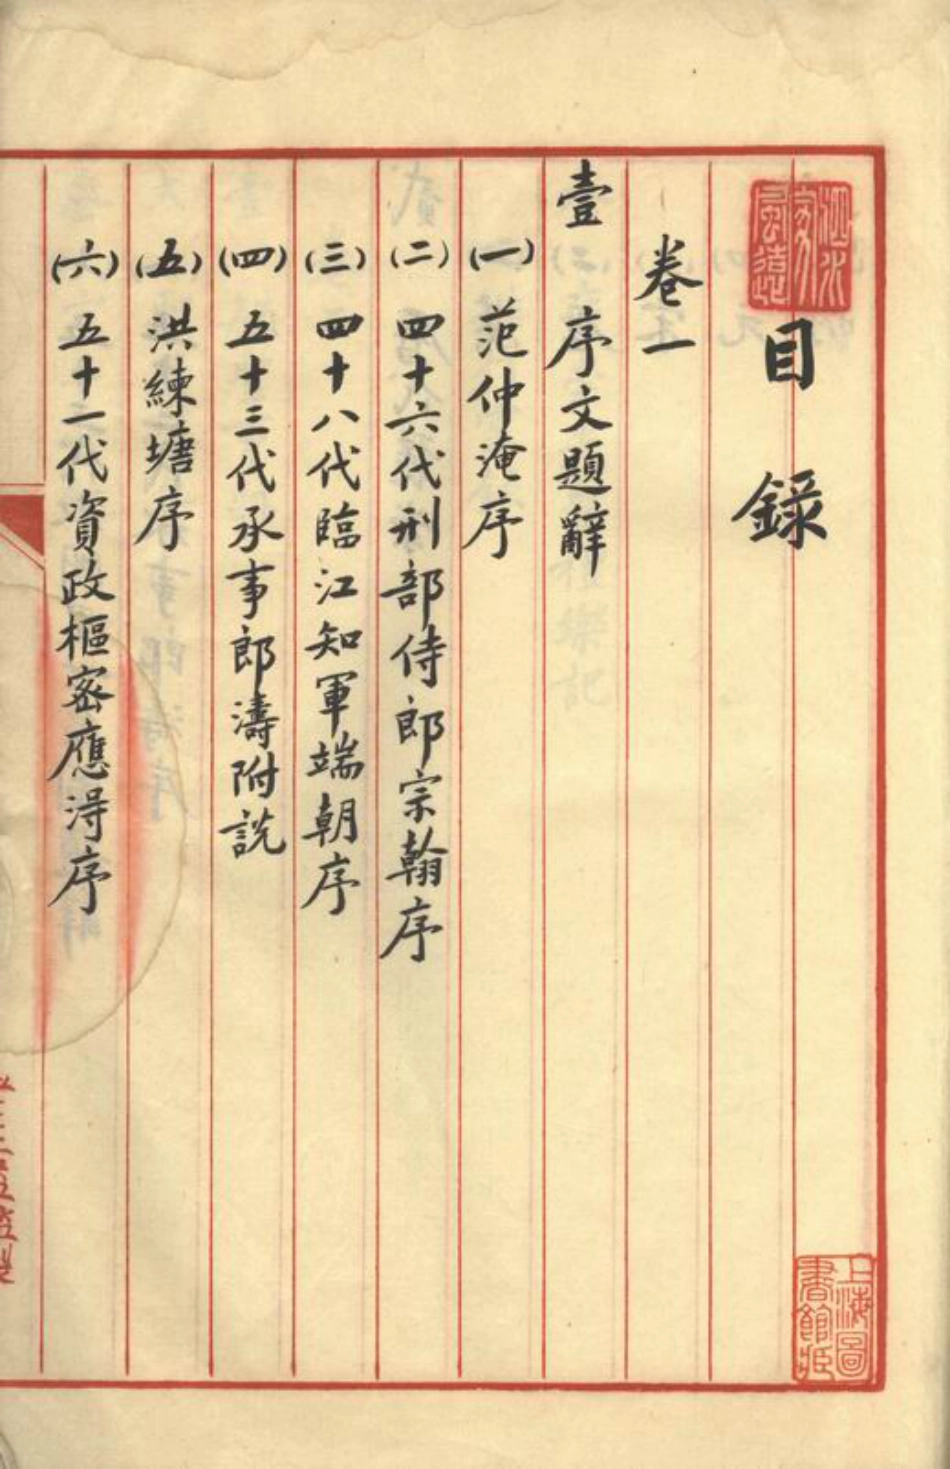 目錄
卷一
壹 序文題辭
(一) 范仲淹序
(二) 四十六代刑部侍郎宗翰序
(三) 四十八代臨江知軍端朝序
(四) 五十三代承事郎濤附説
(五) 洪練塘序
(六) 五十一代資政樞密應淂序
上海圖書館藏